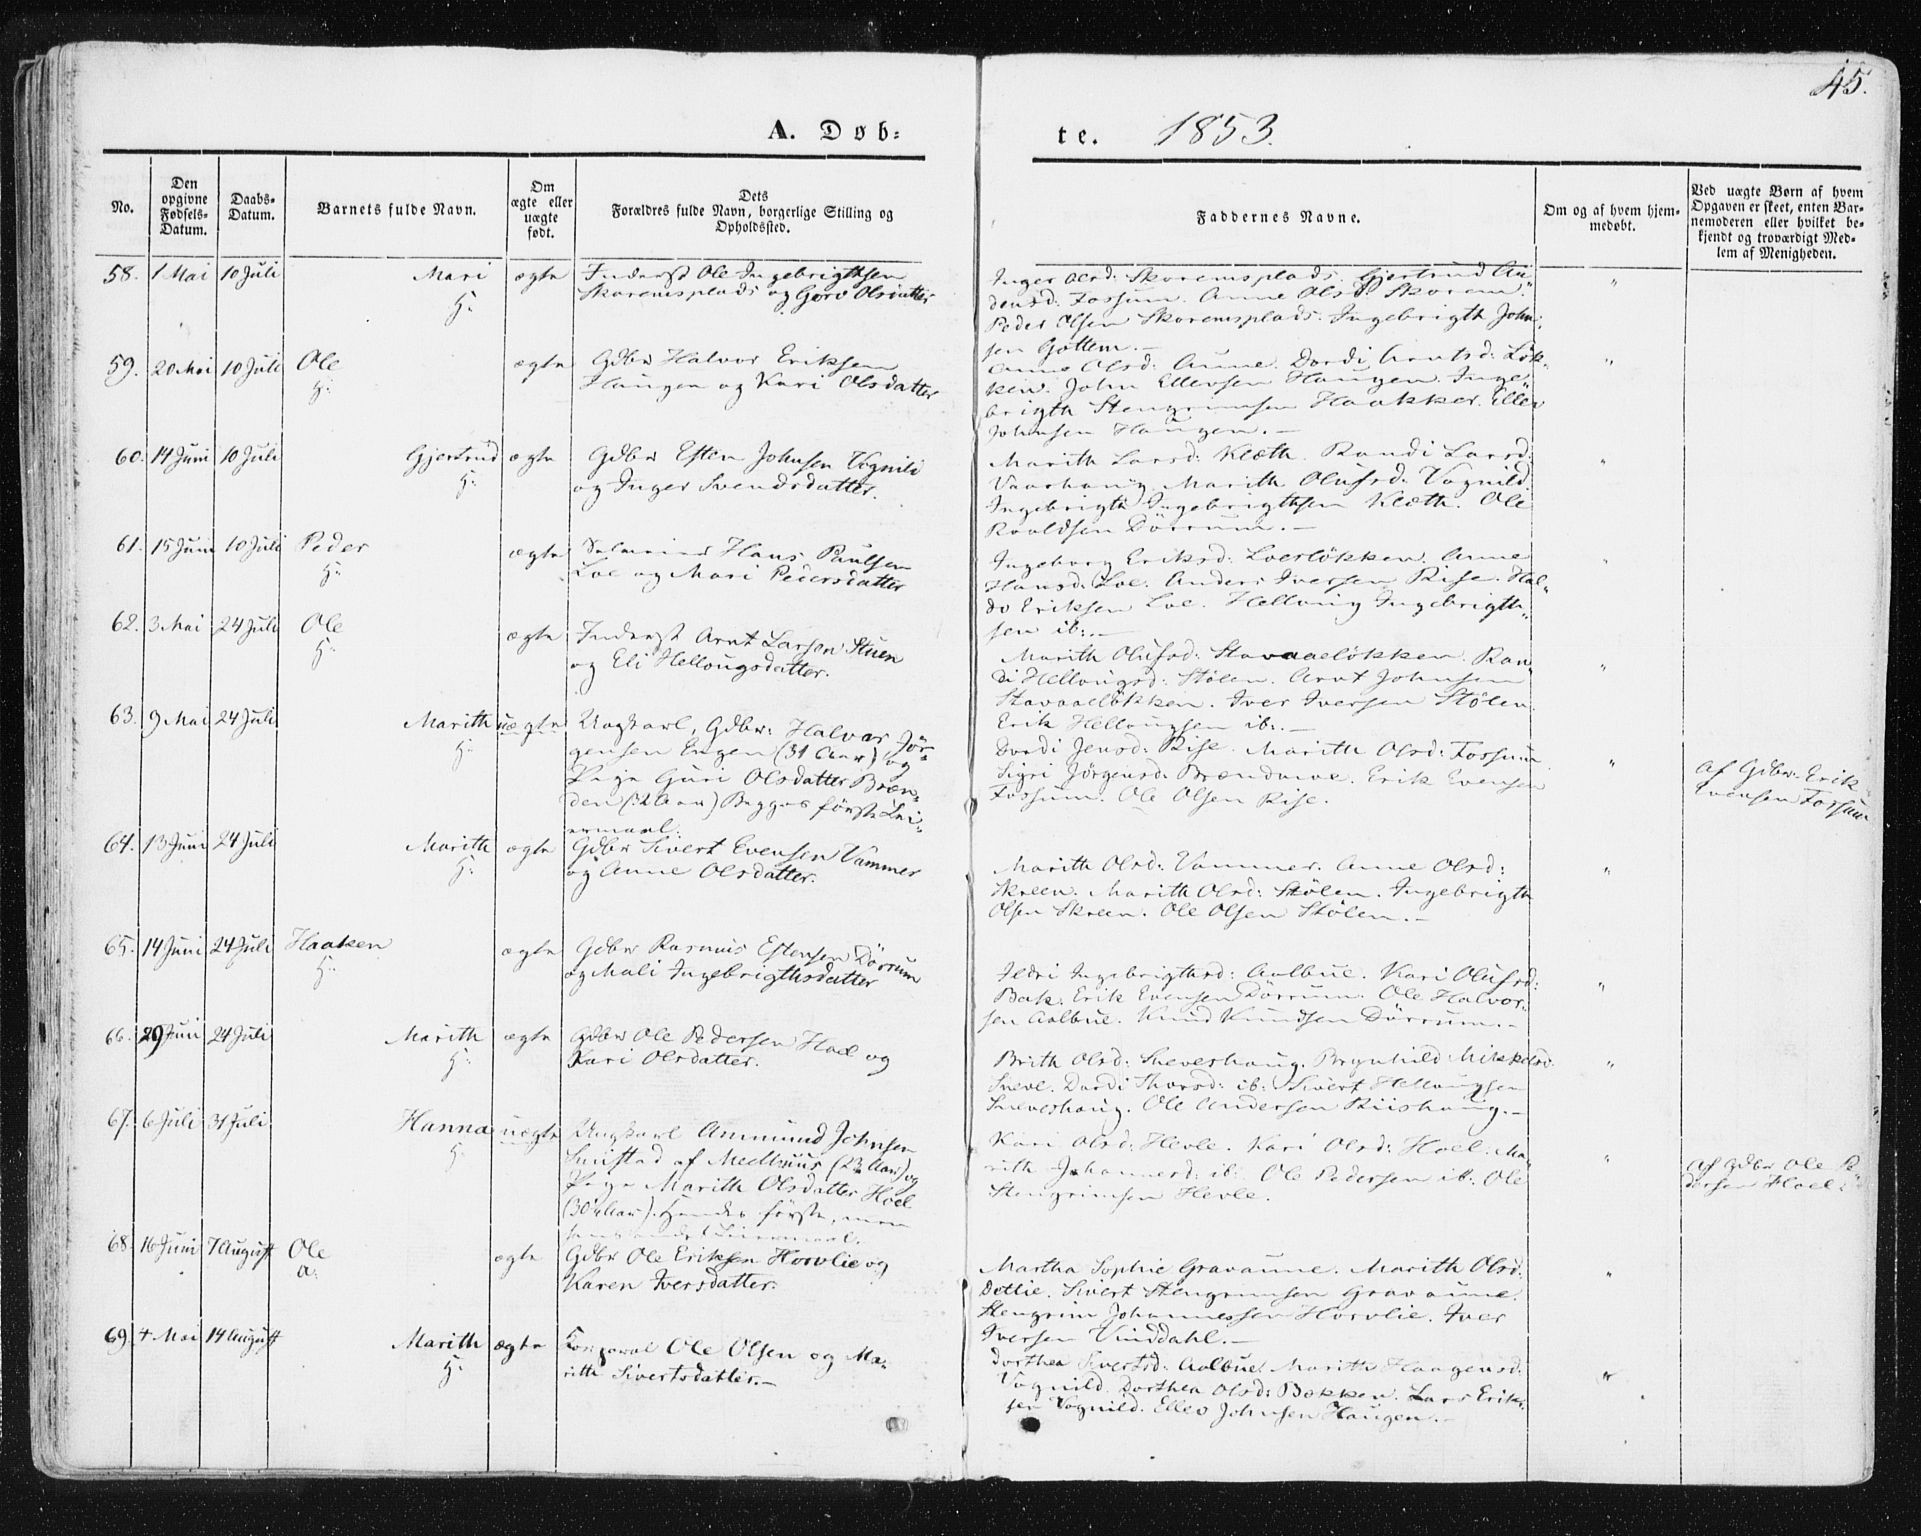 45.
A. Døb-
te. 1853.
No.
Den opgivne Fødsels-Datum.
Daabs-Datum.
Barnets fulde Navn.
Om ægte eller uægte født.
Dets
Forældres fulde Navn, borgerlige Stilling og
Opholdssted.
Faddernes Navne.
Om og af hvem hjem-
medøbt.
Ved uægte Børn af hvem
Opgaven er skeet, enten Bar-
nemoderen eller hvilket be-
kjendt og troværdigt Med-
lem af Menigheden.
58. 1 Mai 10 Juli Mari ægte Inderst Ole Ingebrigthsen
H: Skoremsplads og Goro Olsdatter
Inger Olsd: Skoremsplads. Gjertrud Au-
densd: Fossum. Anne Olsd: Skorem.
Peder Olsen Skoremsplads. Ingebrigth John-
sen Gottem.
59. 20 Mai 10 Juli Ole ægte Gdbr Halvor Eriksen
H: Haugen og Kari Olsdatter
Anne Olsd: Aune. Dordi Arntsd: Løk-
ken. John Ellevsen Haugen. Inge-
brigth Stengrimsen Haakker. Ellev
Johnsen Haugen.
60. 14 Juni 10 Juli Gjertrud ægte Gdbr Esten Johnsen Vognild
H: og Inger Svendsdatter.
Marith Larsd: Klæth. Randi Larsd:
Vaarhaug. Marith Olufsd. Vognild.
Ingebrigth Ingebrigthsen Klæth. Ole
Roaldsen Dørrum.
61. 15 Juni 10 Juli Peder ægte Hans Paulsen
H: Loe og Mari Pedersdatter
Ingeborg Eriksd: Loesløkken. Anne
Hansd: Loe. Anders Iversen Rise. Hal-
do Eriksen Loe. Hellvig Ingebrigth-
sen ib:
62. 3 Mai 24 Juli Ole ægte Inderst Arnt Larsen Stuen
H: og Eli Hellougsdatter.
Marith Olufsd: Stavaaeløkken. Ran-
di Hellougsd: Stølen. Arnt Johnsen
Stavaaeløkken. Iver Iversen Stølen
Erik Hellougsen ib:
63. 9 Mai 24 Juli Marith uægte Ungkarl, Gdbr: Halvor Jør-
H: gensen Engen (31 Aar) og
Pige Guri Olsdatter Bræn-
den Begges første Lei-
ermaal.
Dordi Jensd: Rise. Marith Olsd: Fossum
Sigri Jørgensd: Brendmoe. Erik Evensen
Fossum. Ole Olsen Rise.
Af Gdbr. Erik
Evensen Fossum
64. 13 Juni 24 Juli Marith ægte Gdbr Sivert Evensen Vammer
H: og Anne Olsdatter.
Marith Olsd: Vammer. Anne Olsd:
Skreen. Marith Olsd: Stølen. Ingebrigth
Olsen Skreen. Ole Olsen Stølen.
65. 14 Juni 24 Juli Haaken ægte Gdbr Rasmus Estensen Dørrum
H: og Mali Ingebrigthsdatter
Ildri Ingebrigthsd: Aalbue. Kari Olufsd:
Bak. Erik Evensen Dørrum. Ole Halvor-
sen Aalbue. Knud Knudsen Dørrum.
66. 29 Juni 24 Juli Marith ægte Gdbr Ole Pedersen Hoel og
H: Kari Olsdatter.
Brith Olsd: Sneveshaug. Brynhild Mikkelsd.
Sneve. Dordi Thorsd: ib: Sivert Hellougsen
Sneveshaug. Ole Andersen Riishaug.
67. 6 Juli 31 Juli Hanna uægte Ungkarl Ammund Johnsen
H: Snustad af Melhuus (23 Aar) og
Pige Marith Olsdatter Hoel
(30 Aar). Hendes første, men
Leiermaal.
Kari Olsd: Hevle. Kari Olsd: Hoel. Ma-
rith Johannesd: ib: Ole Pedersen ib: Ole
Stengrimsen Hevle.
Af Gdbr Ole Pe-
dersen Hoel
68. 16 Juni 7 August Ole ægte Gdbr Ole Eriksen Horvlie og
A: Karen Iversdatter.
Martha Sophie Gravaune. Marith Olsd.
Dotlie. Sivert Stengrimsen Gravaune.
Stengrim Johannessen Horvlie. Iver
Iversen Vinddahl.
69. 4 Mai 14 August Marith ægte Korporal Ole Olsen og Ma-
H: rith Sivertsdatter.
Dorthea Sivertsd: Aalbue. Marith Haagensd:
Vognild. Dorthea Olsd: Bakken. Lars Erik-
sen Vognild. Ellev Johnsen Haugen.